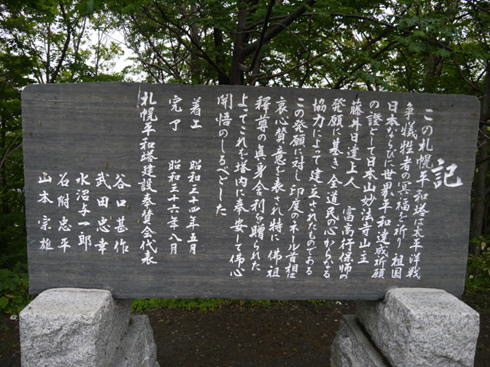 記
この札幌平和塔は太平洋戦
争犠牲者の冥福を祈り祖国
日本ならびに世界平和達成祈願
の證として日本山妙法寺山主
藤井日達上人 富高行保師の
発願に基き全道民の心からなる
協力によって建立されたものである
この発願に対し印度のネール首相は
衷心賛意を表され特に佛祖
釋尊の真身舎利を贈られた
よってこれを塔内に奉安して佛心
開悟のしるべとした
着工 昭和三十四年五月
完了 昭和三十六年八月
札幌平和塔建設奉賛会代表
谷口甚作
武田忠幸
水治与一郎
石附忠平
山本宗雄